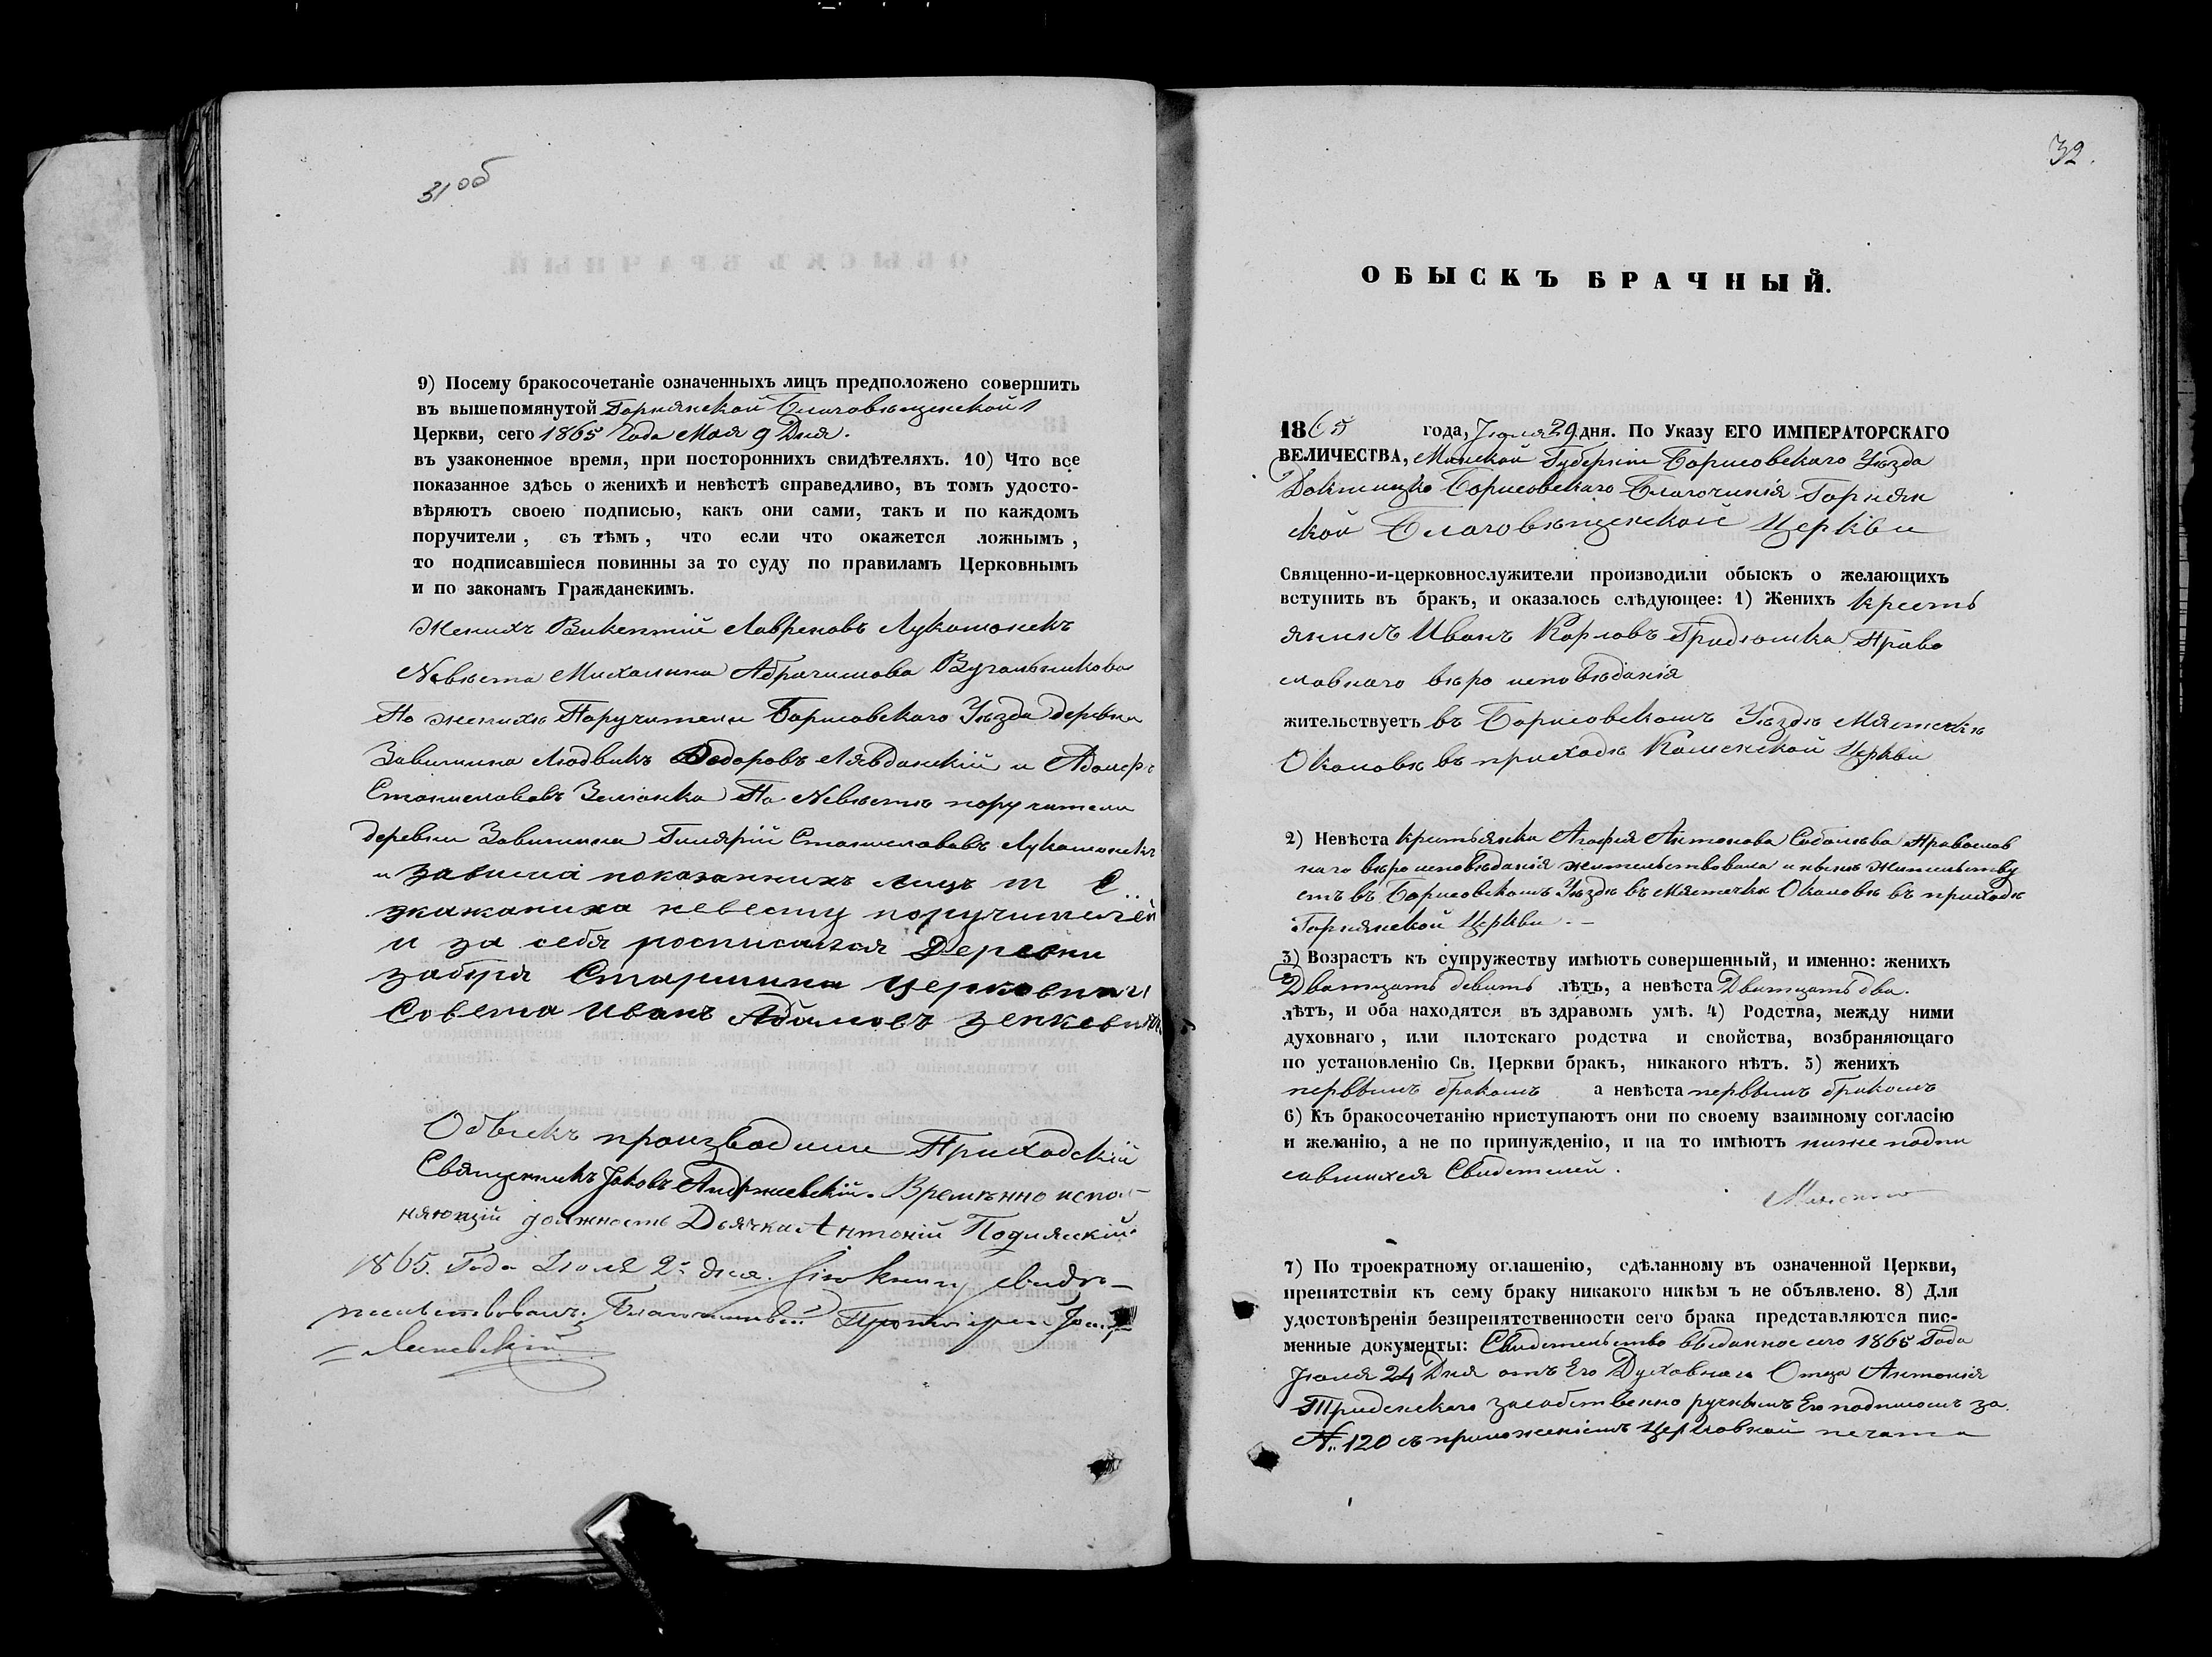 31 об
9) Посему бракосочетаніе означенныхъ лицъ предположено совершить
въ вышепомянутой Горнянской Благовѣщенской
Церкви, сего 1865 Года Мая 9 Дня.
въ узаконенное время, при постороннихъ свидѣтеляхъ. 10) Что все
показанное здѣсь о женихѣ и невѣстѣ справедливо, въ томъ удосто-
вѣряютъ своею подписью, какъ они сами, такъ и по каждомъ
поручители, съ тѣмъ, что если что окажется ложнымъ,
то подписавшіеся повинны за то суду по правиламъ Церковнымъ
и по законамъ Гражданскимъ.
Женихъ Викентій Лавреновъ Лукашонекъ
Невѣста Михалина Абрагимова
По женихѣ Поручители Борисовскаго Уѣзда деревни
Людвикъ Ѳедоровъ Лявданскій и Адольфъ
Станиславовъ Зелонка По Невѣстѣ поручители
деревни Станиславовъ Лукашонекъ
показанныхъ лицъ
невесту поручителей
и за себя росписался Деревни
Старшина Церковнаго
Совета Иванъ Адамовъ Зенкевичъ
Обыскъ производили Приходскій
Священникъ Іаковъ Временно испол-
няющій должность Дьячка Антоній
1865. Года Іюля 2го дня. Сію книгу свидѣ-
тельствовалъ. Благочинный Протоіерей
32.
ОБЫСКЪ БРАЧНЫЙ.
1865 года, Іюля 29 дня. По Указу ЕГО ИМПЕРАТОРСКАГО
ВЕЛИЧЕСТВА, Минской Губерніи Борисовскаго Уѣзда
Докшицко Борисовскаго Благочинія Горнян
кой Благовѣщенской Церкви
Священно-и-церковнослужители производили обыскъ о желающихъ
вступить въ бракъ, и оказалось слѣдующее: 1) Женихъ кресть
янинъ Иванъ Карловъ Гридюшка Право
славнаго вѣро исповѣданія
жительствуетъ въ Борисовскомъ Уѣздѣ Мястечкѣ
Околовѣ въ приходѣ Каменской Церкви
2) Невѣста крестьянка Агафія Антонова Соболева Православ
наго вѣроисповѣданія жительствовала и нынѣ жительству
етъ въ Борисовскомъ Уѣздѣ въ Мястечкѣ Околовѣ въ приходѣ
Горнянской Церкви. –
3) Возрастъ къ супружеству имѣютъ совершенный, и именно: женихъ
Двадцать девять лѣтъ, а невѣста Двадцать два.
лѣтъ, и оба находятся въ здравомъ умѣ. 4) Родства, между ними
духовнаго, или плотскаго родства и свойства, возбраняющаго
по установленію Св. Церкви бракъ, никакого нѣтъ. 5) женихъ
первымъ бракомъ а невѣста первымъ бракомъ
6) Къ бракосочетанію приступаютъ они по своему взаимному согласію
и желанію, а не по принужденію, и на то имѣютъ ниже подпи
савшихся Свидетелей.
7) По троекратному оглашенію, сдѣланному въ означенной Церкви,
препятствія къ сему браку никакого никѣмъ не объявлено. 8) Для
удостовѣренія безпрепятственности сего брака представляются пис-
менные документы: Свидетельство выданное сего 1865 Года
Іюля 24 Дня отъ Его Духовнаго Отца Антонія
засобственно ручнымъ Его подписомъ за
№ 120 съ приложеніемъ Церковной печати